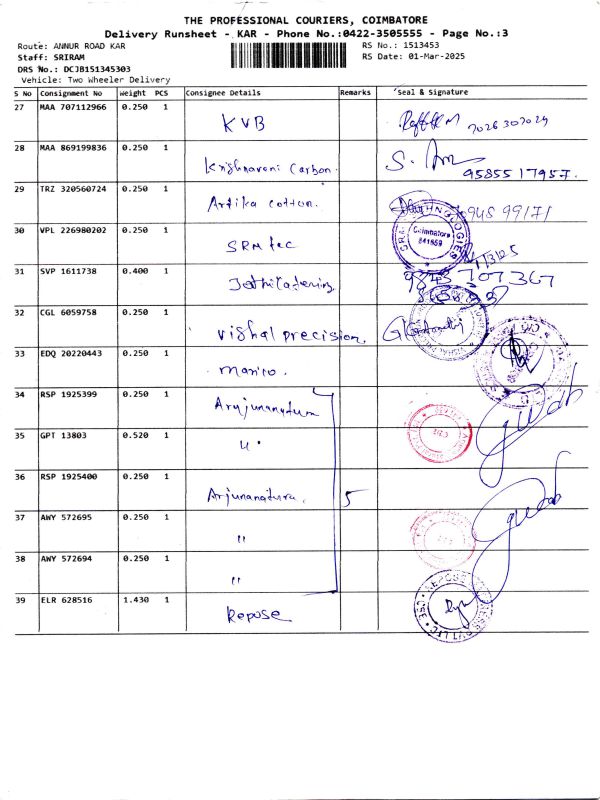 THE PROFESSIONAL COURIERS, COIMBATORE
Delivery Runsheet - KAR - Phone No.:0422-3505555 - Page No.:3
Route: ANNUR ROAD KAR RS No.: 1513453
Staff: SRIRAM RS Date: 01-Mar-2025
DRS No.: DCJB151345303
Vehicle: Two Wheeler Delivery
S No Consignment No Weight PCS Consignee Details Remarks Seal & Signature
27 MAA 707112966 0.250 1 KVB
28 MAA 869199836 0.250 1 Krishnaveni Carbon. 9585517957.
29 TRZ 320560724 0.250 1 Artika cotton.
30 VPL 226980202 0.250 1 SRM tec Coimbatore 641659
31 SVP 1611738 0.400 1 9843707367
32 CGL 6059758 0.250 1 vishal precision.
33 EDQ 20220443 0.250 1 marico.
34 RSP 1925399 0.250 1
35 GPT 13803 0.520 1 "
36 RSP 1925400 0.250 1 Arjunanatura. 5
37 AWY 572695 0.250 1 "
38 AWY 572694 0.250 1 "
39 ELR 628516 1.430 1 Repose REPOSE